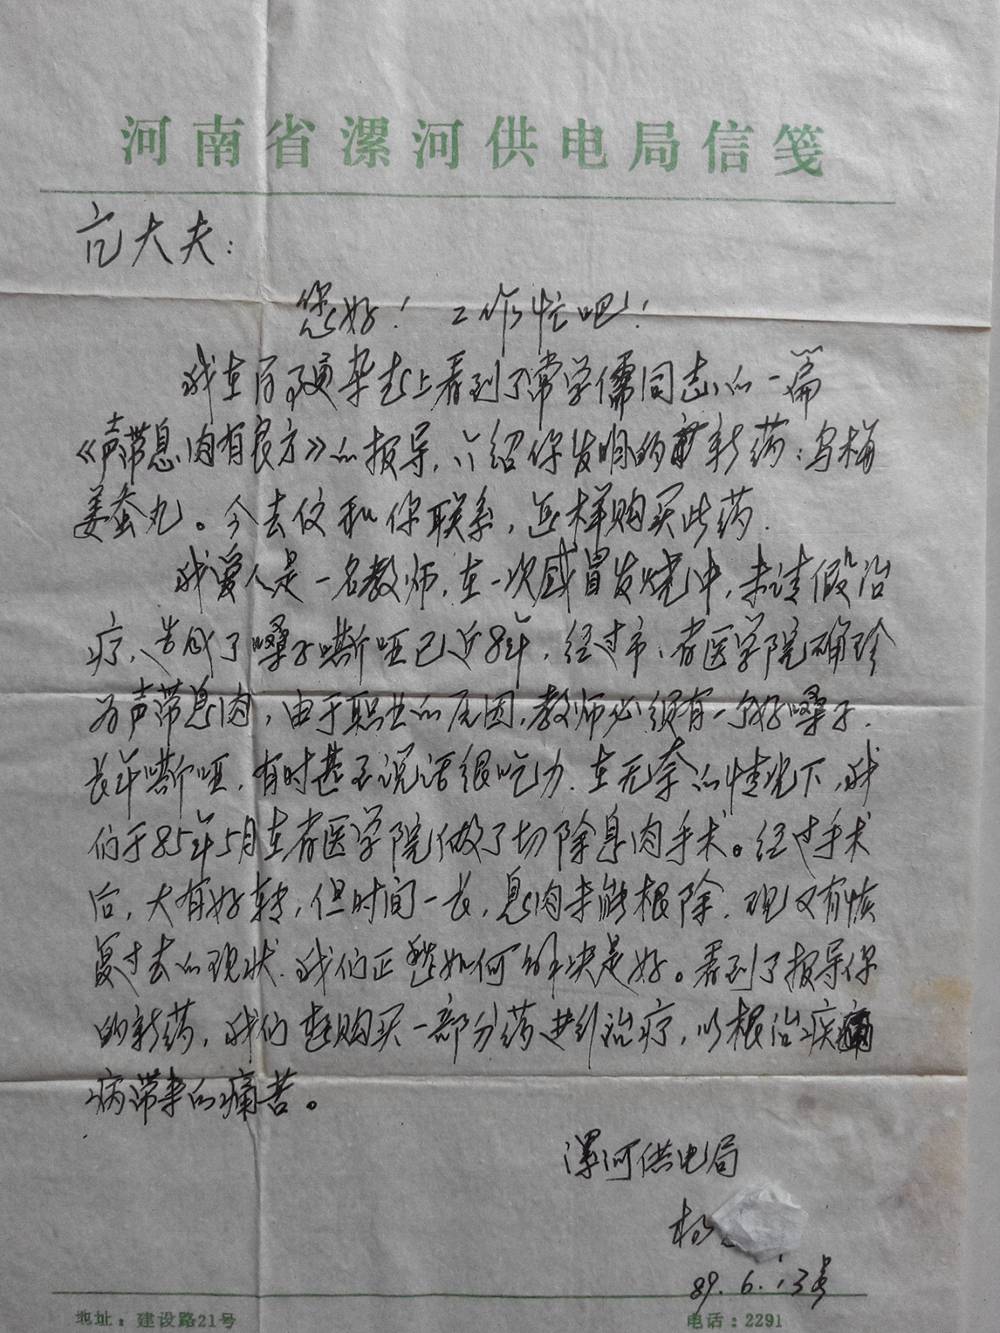 河南省漯河供电局信笺
大夫：
您好！工作忙吧！
我在百硬杂志上看到了常学儒同志的一篇
《声带息肉有良方》的报导，介绍你发明的新药：乌梅
姜蚕丸。今去信和你联系，怎样购买此药.
我爱人是一名教师，在一次感冒发烧中，未请假治
疗，造成了嗓子嘶哑已近8年，经过市、省医学院确诊
为声带息肉，由于职业的原因，教师必须有一个好嗓子.
长年嘶哑，有时甚至说话很吃力.在无奈的情况下，我
们于85年5月在省医学院做了切除息肉手术。经过手术
后，大有好转，但时间一长，息肉未能根除.现又有恢
复过去的现状.我们正愁如何解决是好。看到了报导你
的新药，我们想购买一部分药进行治疗，以根治疾
病带来的痛苦。
漯河供电局
杨
89.6.13号
地址：建设路21号
电话：2291